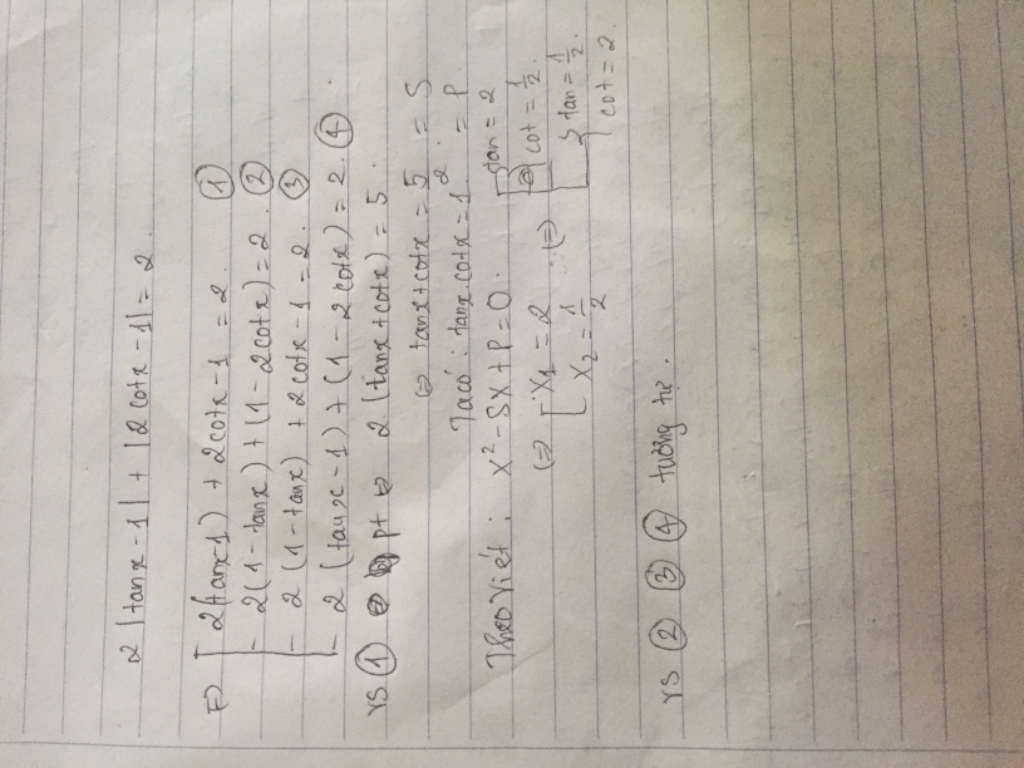 2 |tanx - 1| + |2cotx - 1| = 2.
⇔ [ 2(tanx-1) + 2cotx - 1 = 2. ①
2(1 - tanx) + (1 - 2cotx) = 2. ②
2 (1 - tanx) + 2cotx - 1 = 2. ③
2 (tanx - 1) + (1 - 2cotx) = 2. ④
vs ① pt ⇔ 2 (tanx + cotx) = 5.
⇔ tanx + cotx = 5/2. = S
Tacó: tanx.cotx = 1. = P.
Theo Viét: X² - SX + P = 0.
(⇒) [ X₁ = 2 (⇒) [ { tan = 2
cot = 1/2.
X₂ = 1/2
{ tan = 1/2.
cot = 2.
vs ② ③ ④ tương tự.